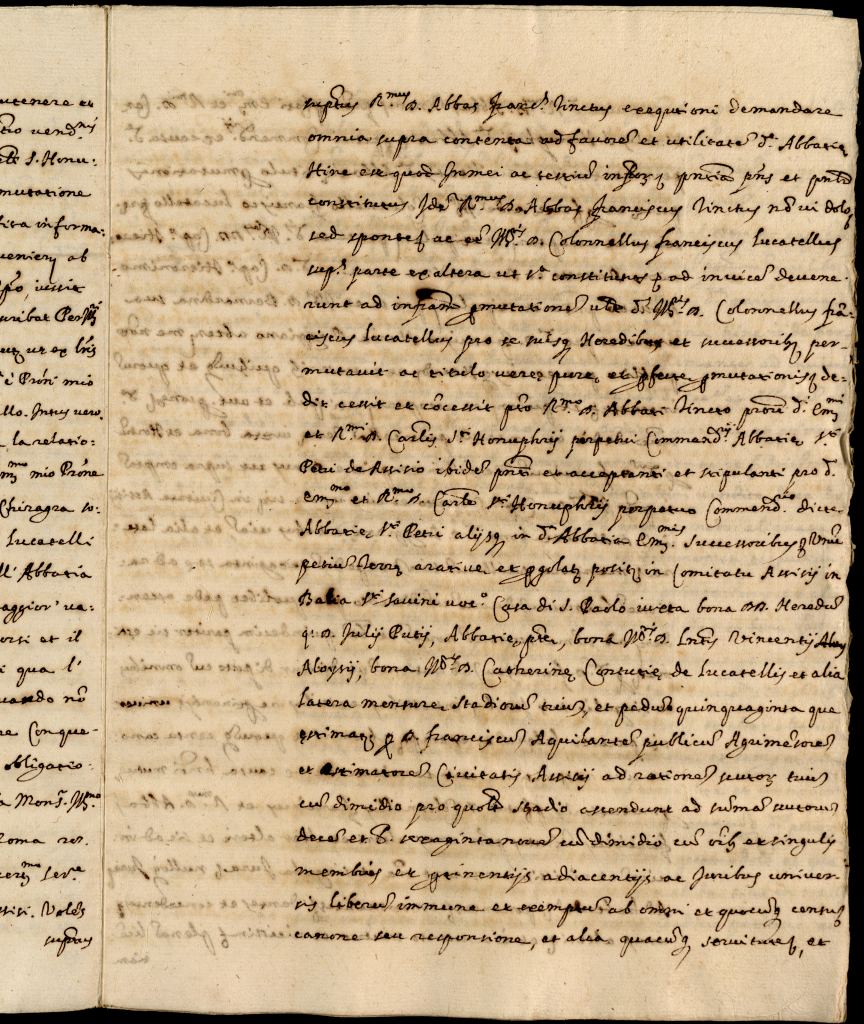 utenere et
tio vend.ni
S. Honu:
mutatione
lita informa:
uenien, ab
pso, uestir
uribat Per
ut ex lris
Prõri mio
llo. Intus uero
la relatio:
mo mio Prõne
Chiragra so.
Lucatelli
ll' Abbatia
aggior' ua:
orsi et il
i qua l'
uando nõ
re Conque-
obligatio
a Mons.r Ill.mo
Roma res.
Ser.e
Voles
suprãs
suprus R.mus D. Abbas Franc.s Tinctus exequtioni demandare
omnia supra contenta ad fauore et utilitate d. Abbatie
Hine est quod In mei ac testiu infrorq pntia pns et pntr
constitutus Ide R.mus D. Abbas franciscus Tinctus nõ ui dolo
sed sponteq ac et Ill.r D. Colonnellus franciscus Lucatellus
sup.s parte ex altera ut s.a constitutus p ad inuice deuene-
runt ad infram pmutatione uide d. Ill.r D. Colonnellus frã-
ciscus Lucatellus pro se suisq Heredibus et successoribq per-
mutauit ac titulo uere, pure, et pfecte pmutationisq de-
dit cessit et cõcessit pto R.mo D. Abbati Tincto prori d. Emi
et R.mi D. Carlis S.ti Honuphrij perpetui Command.rij Abbatie, S.ti
Petri de Assisio ibide pnti et acceptanti et stipulanti pro d.
Em.mo et R.mo D. Carle S.ti Honuphrij perpetuo Commend.rio dicte
Abbatie, S.ti Petri alijsq in d. Abbatia Em.mis Successoribus q Unu
petiu Terre, arative, et pgolate, posite, in Comitatu Assisij in
Balia S.ti Sauini uoc.o Casa di S. Paolo iuxta bona DD. Heredu
q. D. Julij Putij, Abbatie, pte, bona Ill.r D. Lntis Vincentij Aloy
Aloysij, bona Ill.r D. Catherine, Contutie, de Lucatellis et alia
latera mensure, Stadioru triu, et pedu quinquaginta que
estimate, p D. franciscu Aquibante publicu Agrimesore
et estimatore Ciuitatis Assisij ad ratione scutor, triu
cu dimidio pro quolt Stadio ascendunt ad suma scutoru
dece et b. sexagintanoue cu dimidio cu oib et singulis
membris et ptinentijs adiacentijs ac Juribus univer-
sis liberu immune et exemptu ab omni et quocuq censu
canone seu responsione, et alia quacuq seruituteq, et